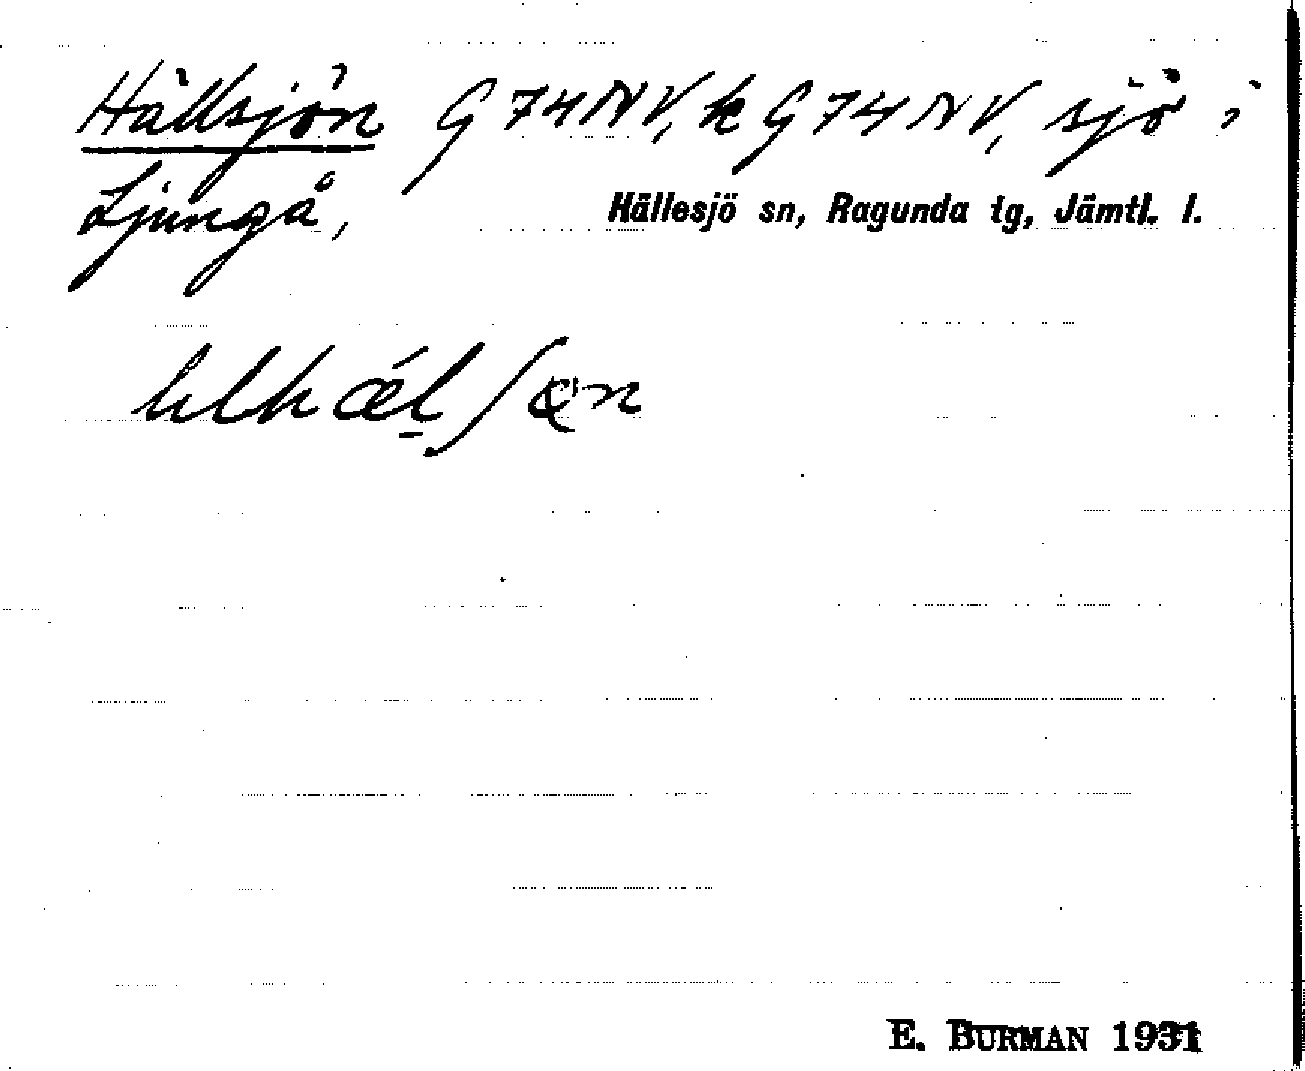 Hällsjön G74NV, k G74NV, sjö i
Ljungå, Hällesjö sn, Ragunda tg, Jämtl. l.
E. BURMAN 1931